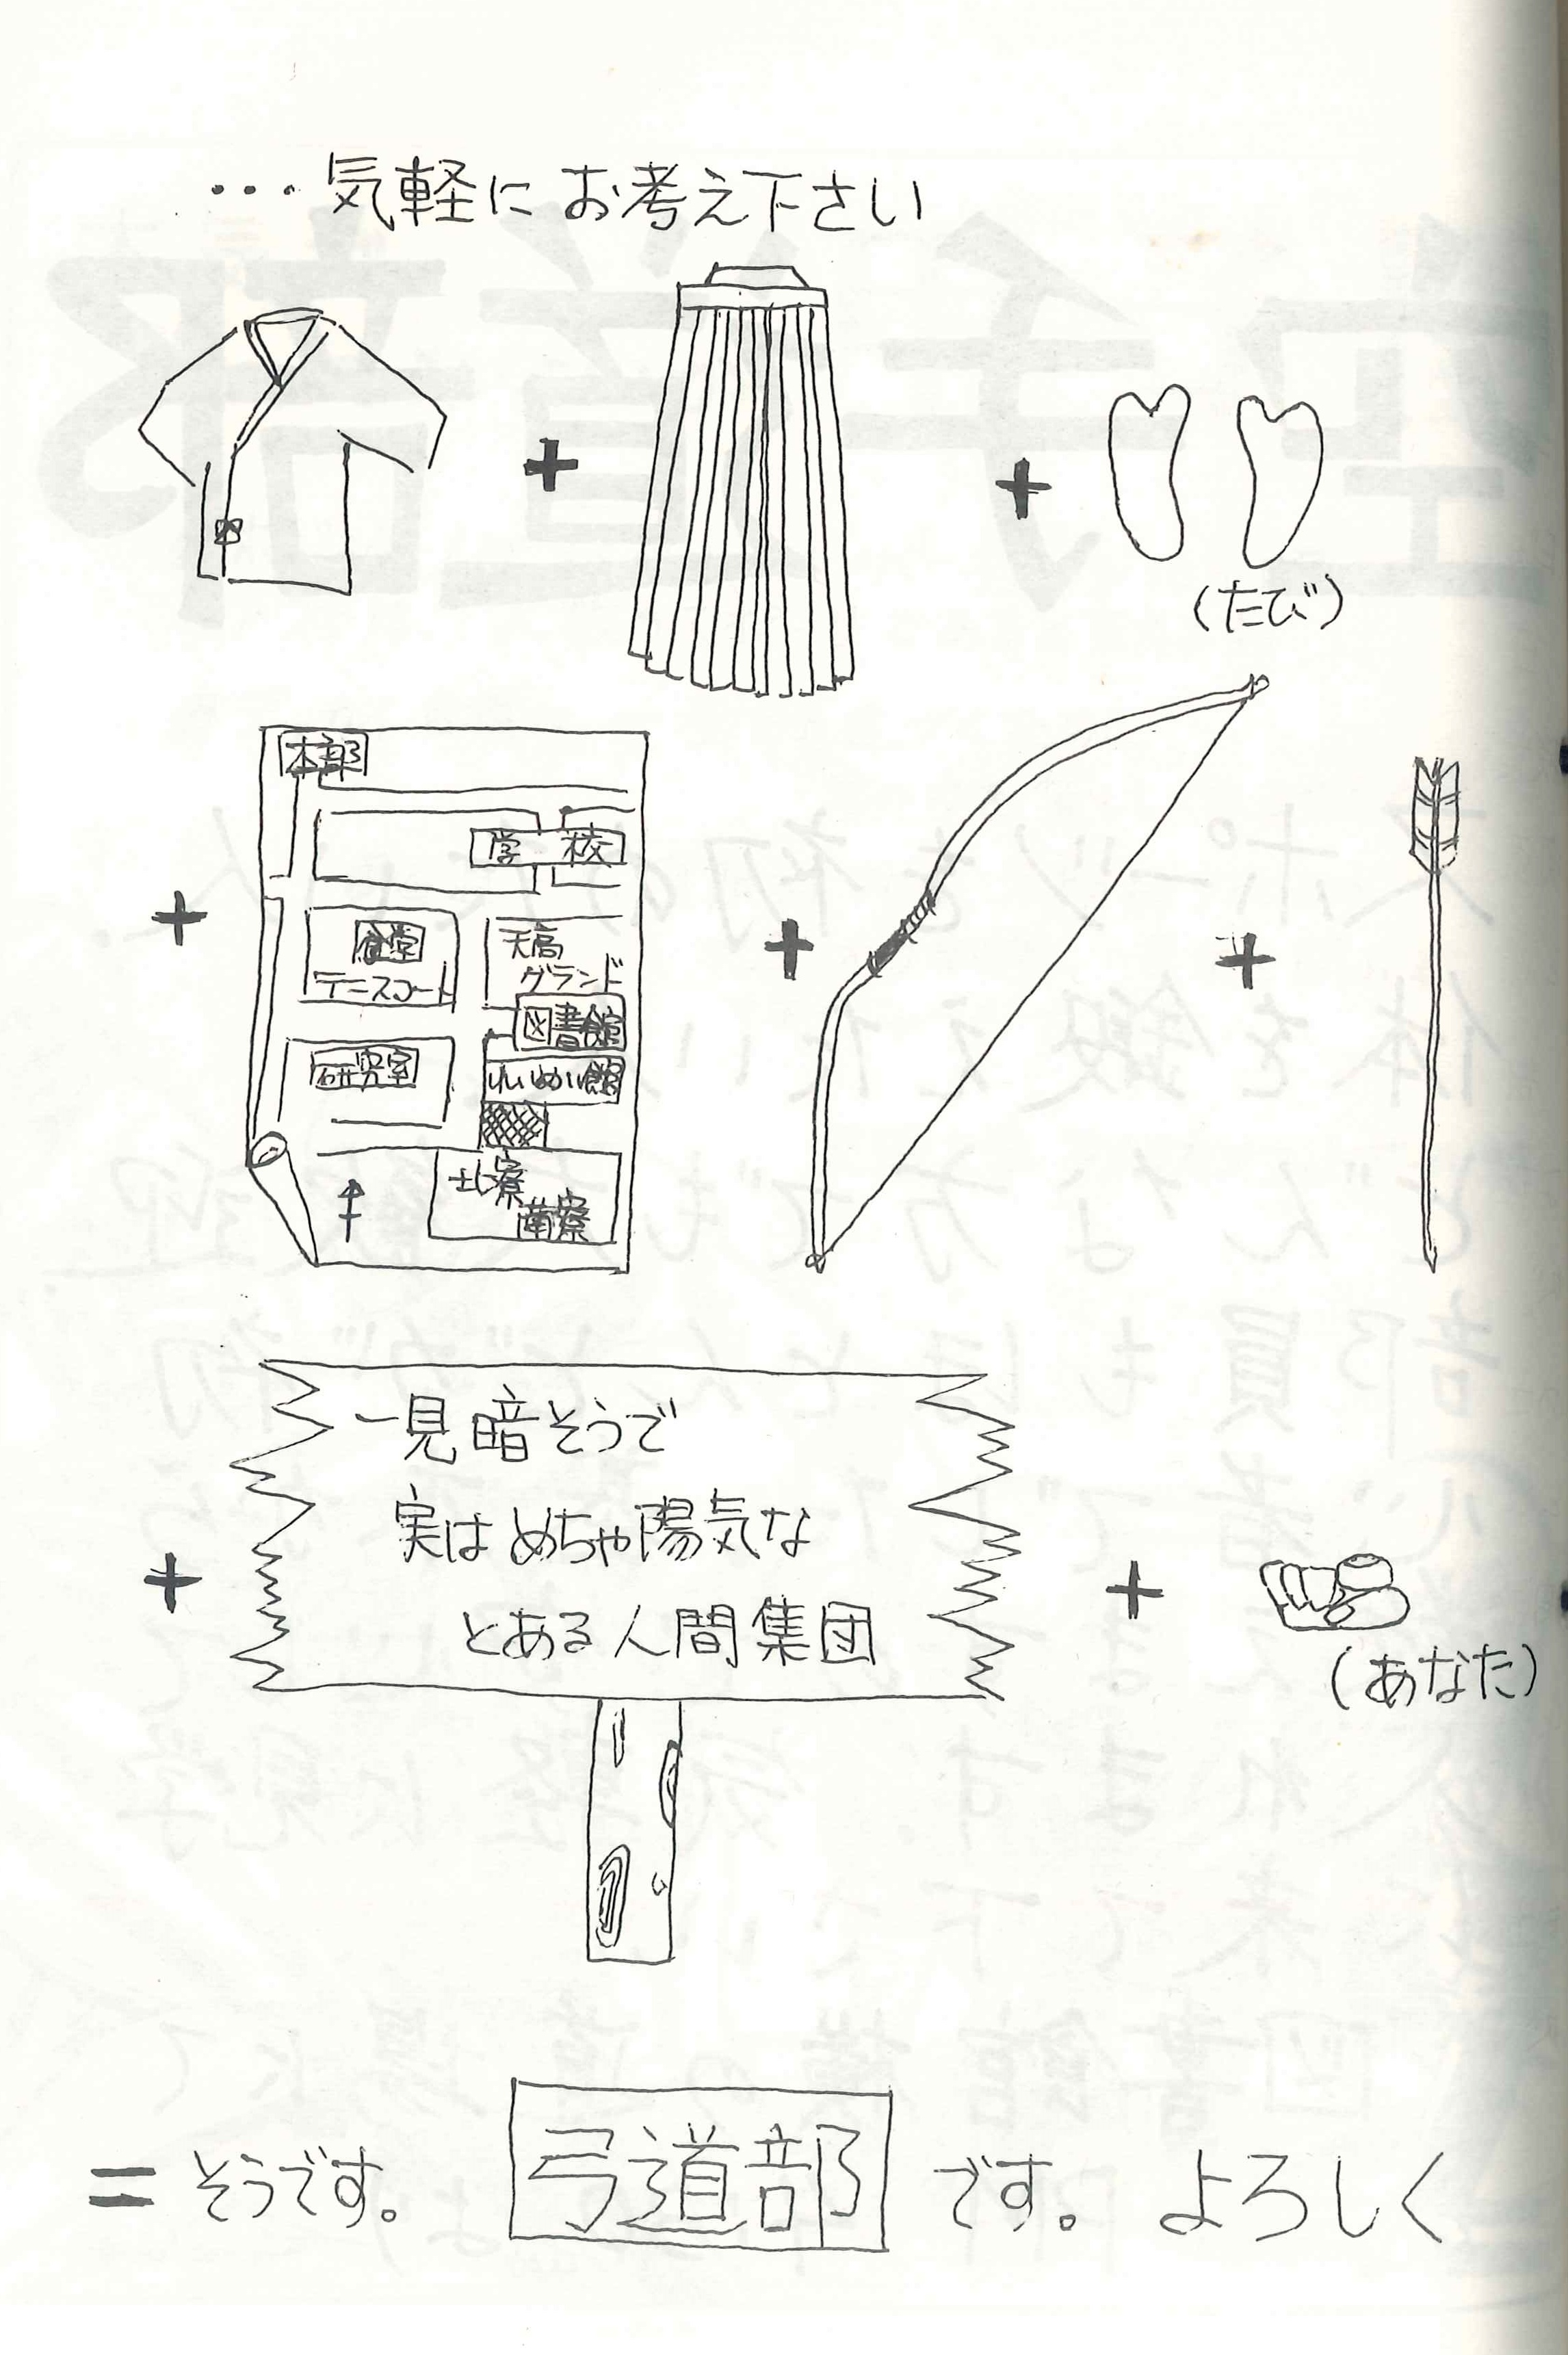 …気軽にお考え下さい
+
+
(たび)
+
本部
学校
食堂
テニスコート
天高
グランド
図書館
れいめい館
研究室
北寮
南寮
+
+
+
一見暗そうで
実はめちゃ陽気な
とある人間集団
+
(あなた)
= そうです。 弓道部 です。 よろしく